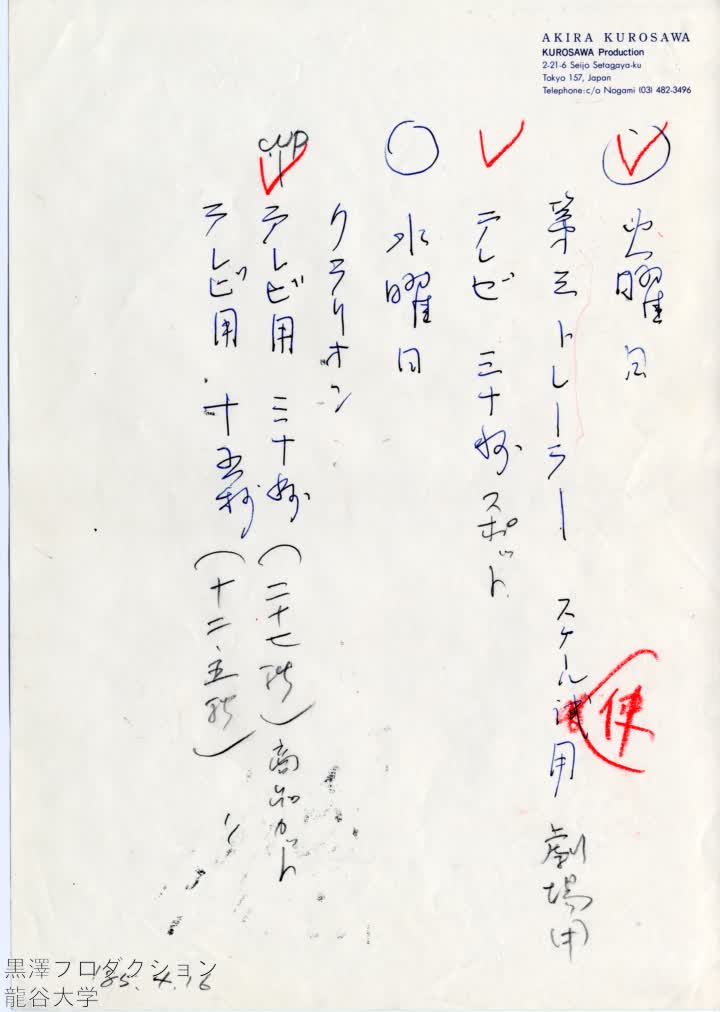 AKIRA KUROSAWA
KUROSAWA Production
2-21-6 Seijo Setagaya-ku
Tokyo 157, Japan
Telephone:c/o Nogami (03) 482-3496
火曜日
第三トレーラー スケール 用 劇場用
使
テレビ 三十秒スポット
水曜日
クラリオン
テレビ用 三十秒(二十七秒)商品カット
テレビ用 十五秒(十二、五秒) 〃
'85.4.16
黒澤プロダクション
龍谷大学